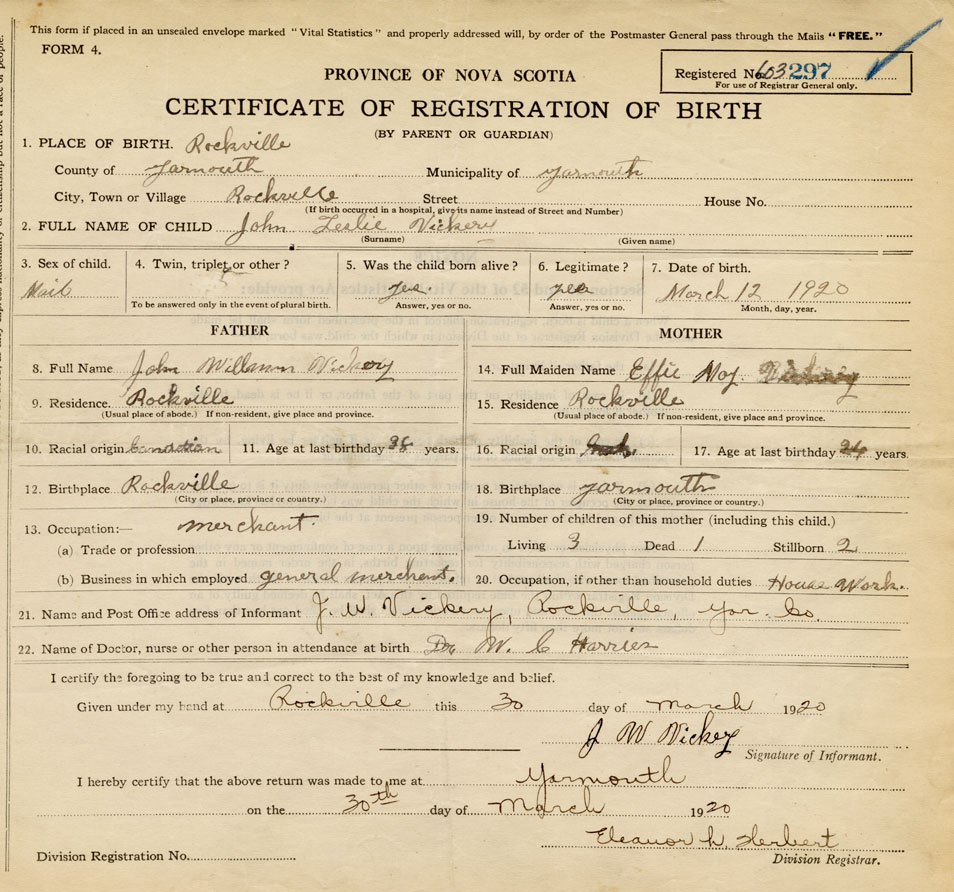 This form if placed in an unsealed envelope marked "Vital Statistics" and properly addressed will, by order of the Postmaster General pass through the Mails "FREE."
FORM 4.
PROVINCE OF NOVA SCOTIA
Registered No. 603297
For use of Registrar General only.
CERTIFICATE OF REGISTRATION OF BIRTH
(BY PARENT OR GUARDIAN)
1. PLACE OF BIRTH. Rockville
County of Yarmouth Municipality of Yarmouth
City, Town or Village Rockville Street House No.
(If birth occurred in a hospital, give its name instead of Street and Number)
2. FULL NAME OF CHILD John Leslie Vickery
(Surname) (Given name)
3. Sex of child. 4. Twin, triplet, or other? 5. Was the child born alive? 6. Legitimate? 7. Date of birth.
Mail yes. yes March 12 1920
To be answered only in the event of plural birth. Answer, yes or no. Answer, yes or no. Month, day, year.
FATHER MOTHER
8. Full Name John Vickery 14. Full Maiden Name Effie May
9. Residence. Rockville 15. Residence Rockville
(Usual place of abode.) If non-resident, give place and province. (Usual place of abode.) If non-resident, give place and province.
10. Racial origin Canadian 11. Age at last birthday 38 years. 16. Racial origin 17. Age at last birthday years.
12. Birthplace Rockville 18. Birthplace Yarmouth
(City or place, province or country.) (City or place, province or country.)
13. Occupation:— merchant. 19. Number of children of this mother (including this child.)
(a) Trade or profession Living 3 Dead 1 Stillborn 2
(b) Business in which employed general merchant. 20. Occupation, if other than household duties House Work.
21. Name and Post Office address of Informant J. W. Vickery, Rockville, Yar. Co.
22. Name of Doctor, nurse or other person in attendance at birth Dr W. C Harries
I certify the foregoing to be true and correct to the best of my knowledge and belief.
Given under my hand at Rockville this 30 day of March 1920
J W Vickery
Signature of Informant.
I hereby certify that the above return was made to me at Yarmouth
on the 30th day of March 1920
Eleanor L. Herbert
Division Registration No. Division Registrar.